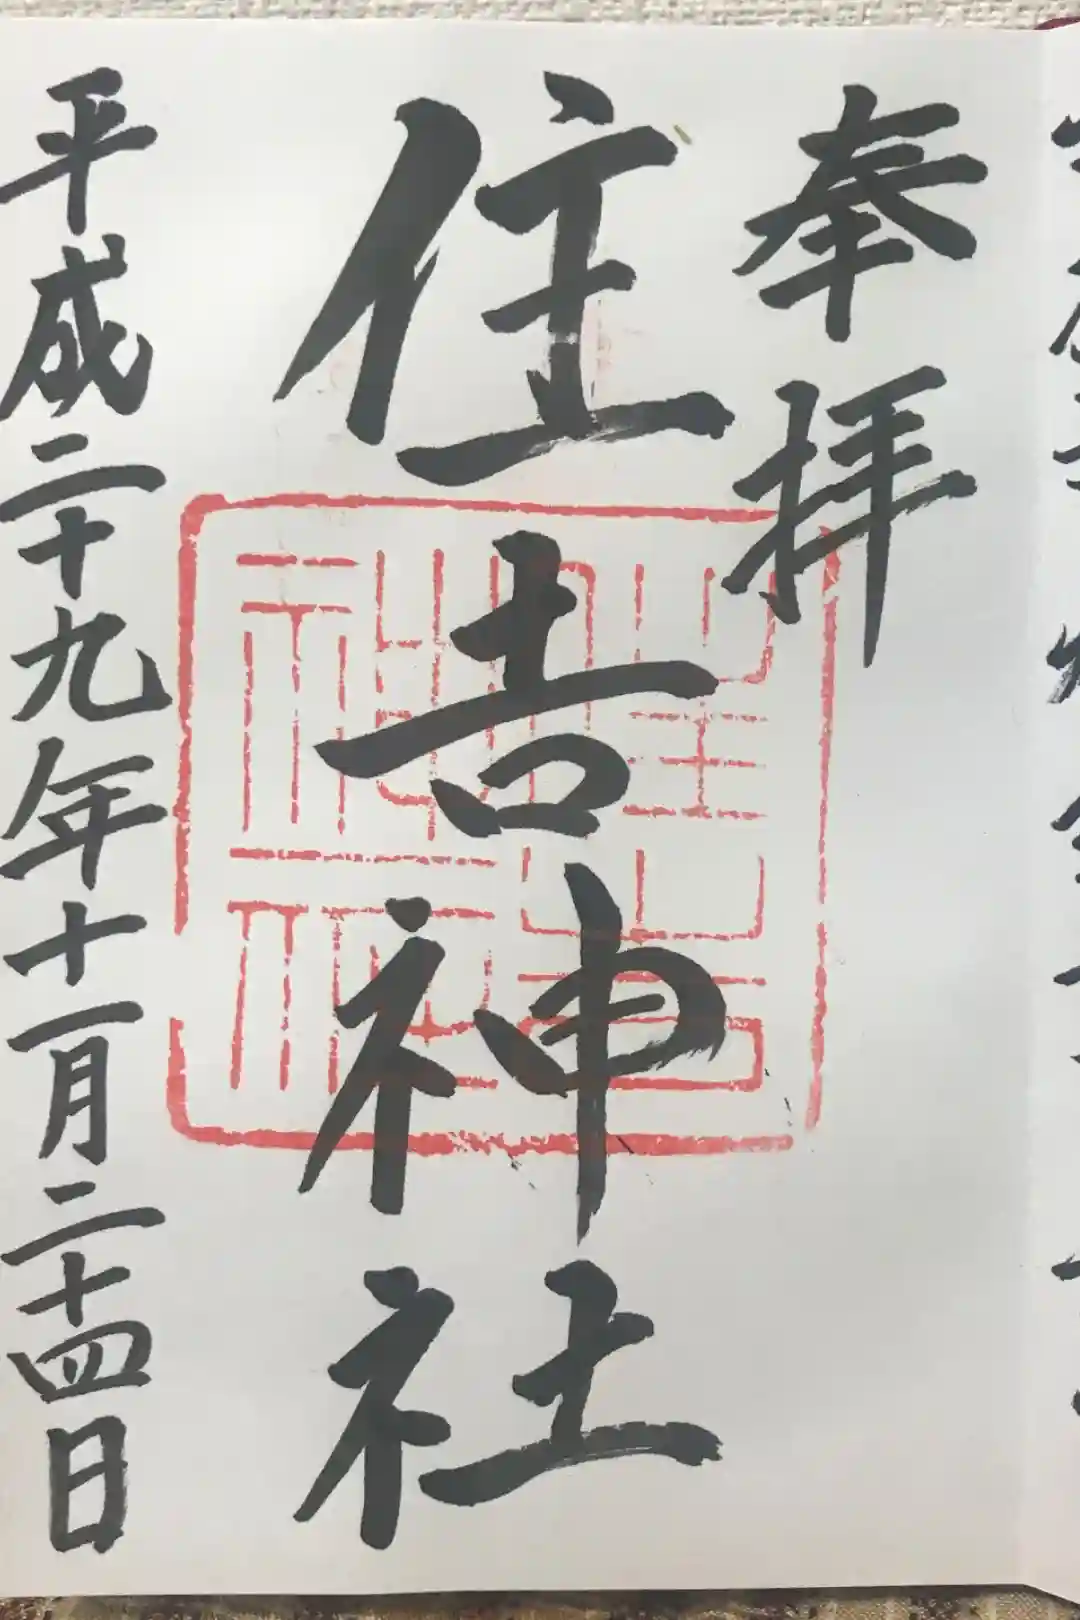 奉拝
住吉神社
平成二十九年十一月二十四日